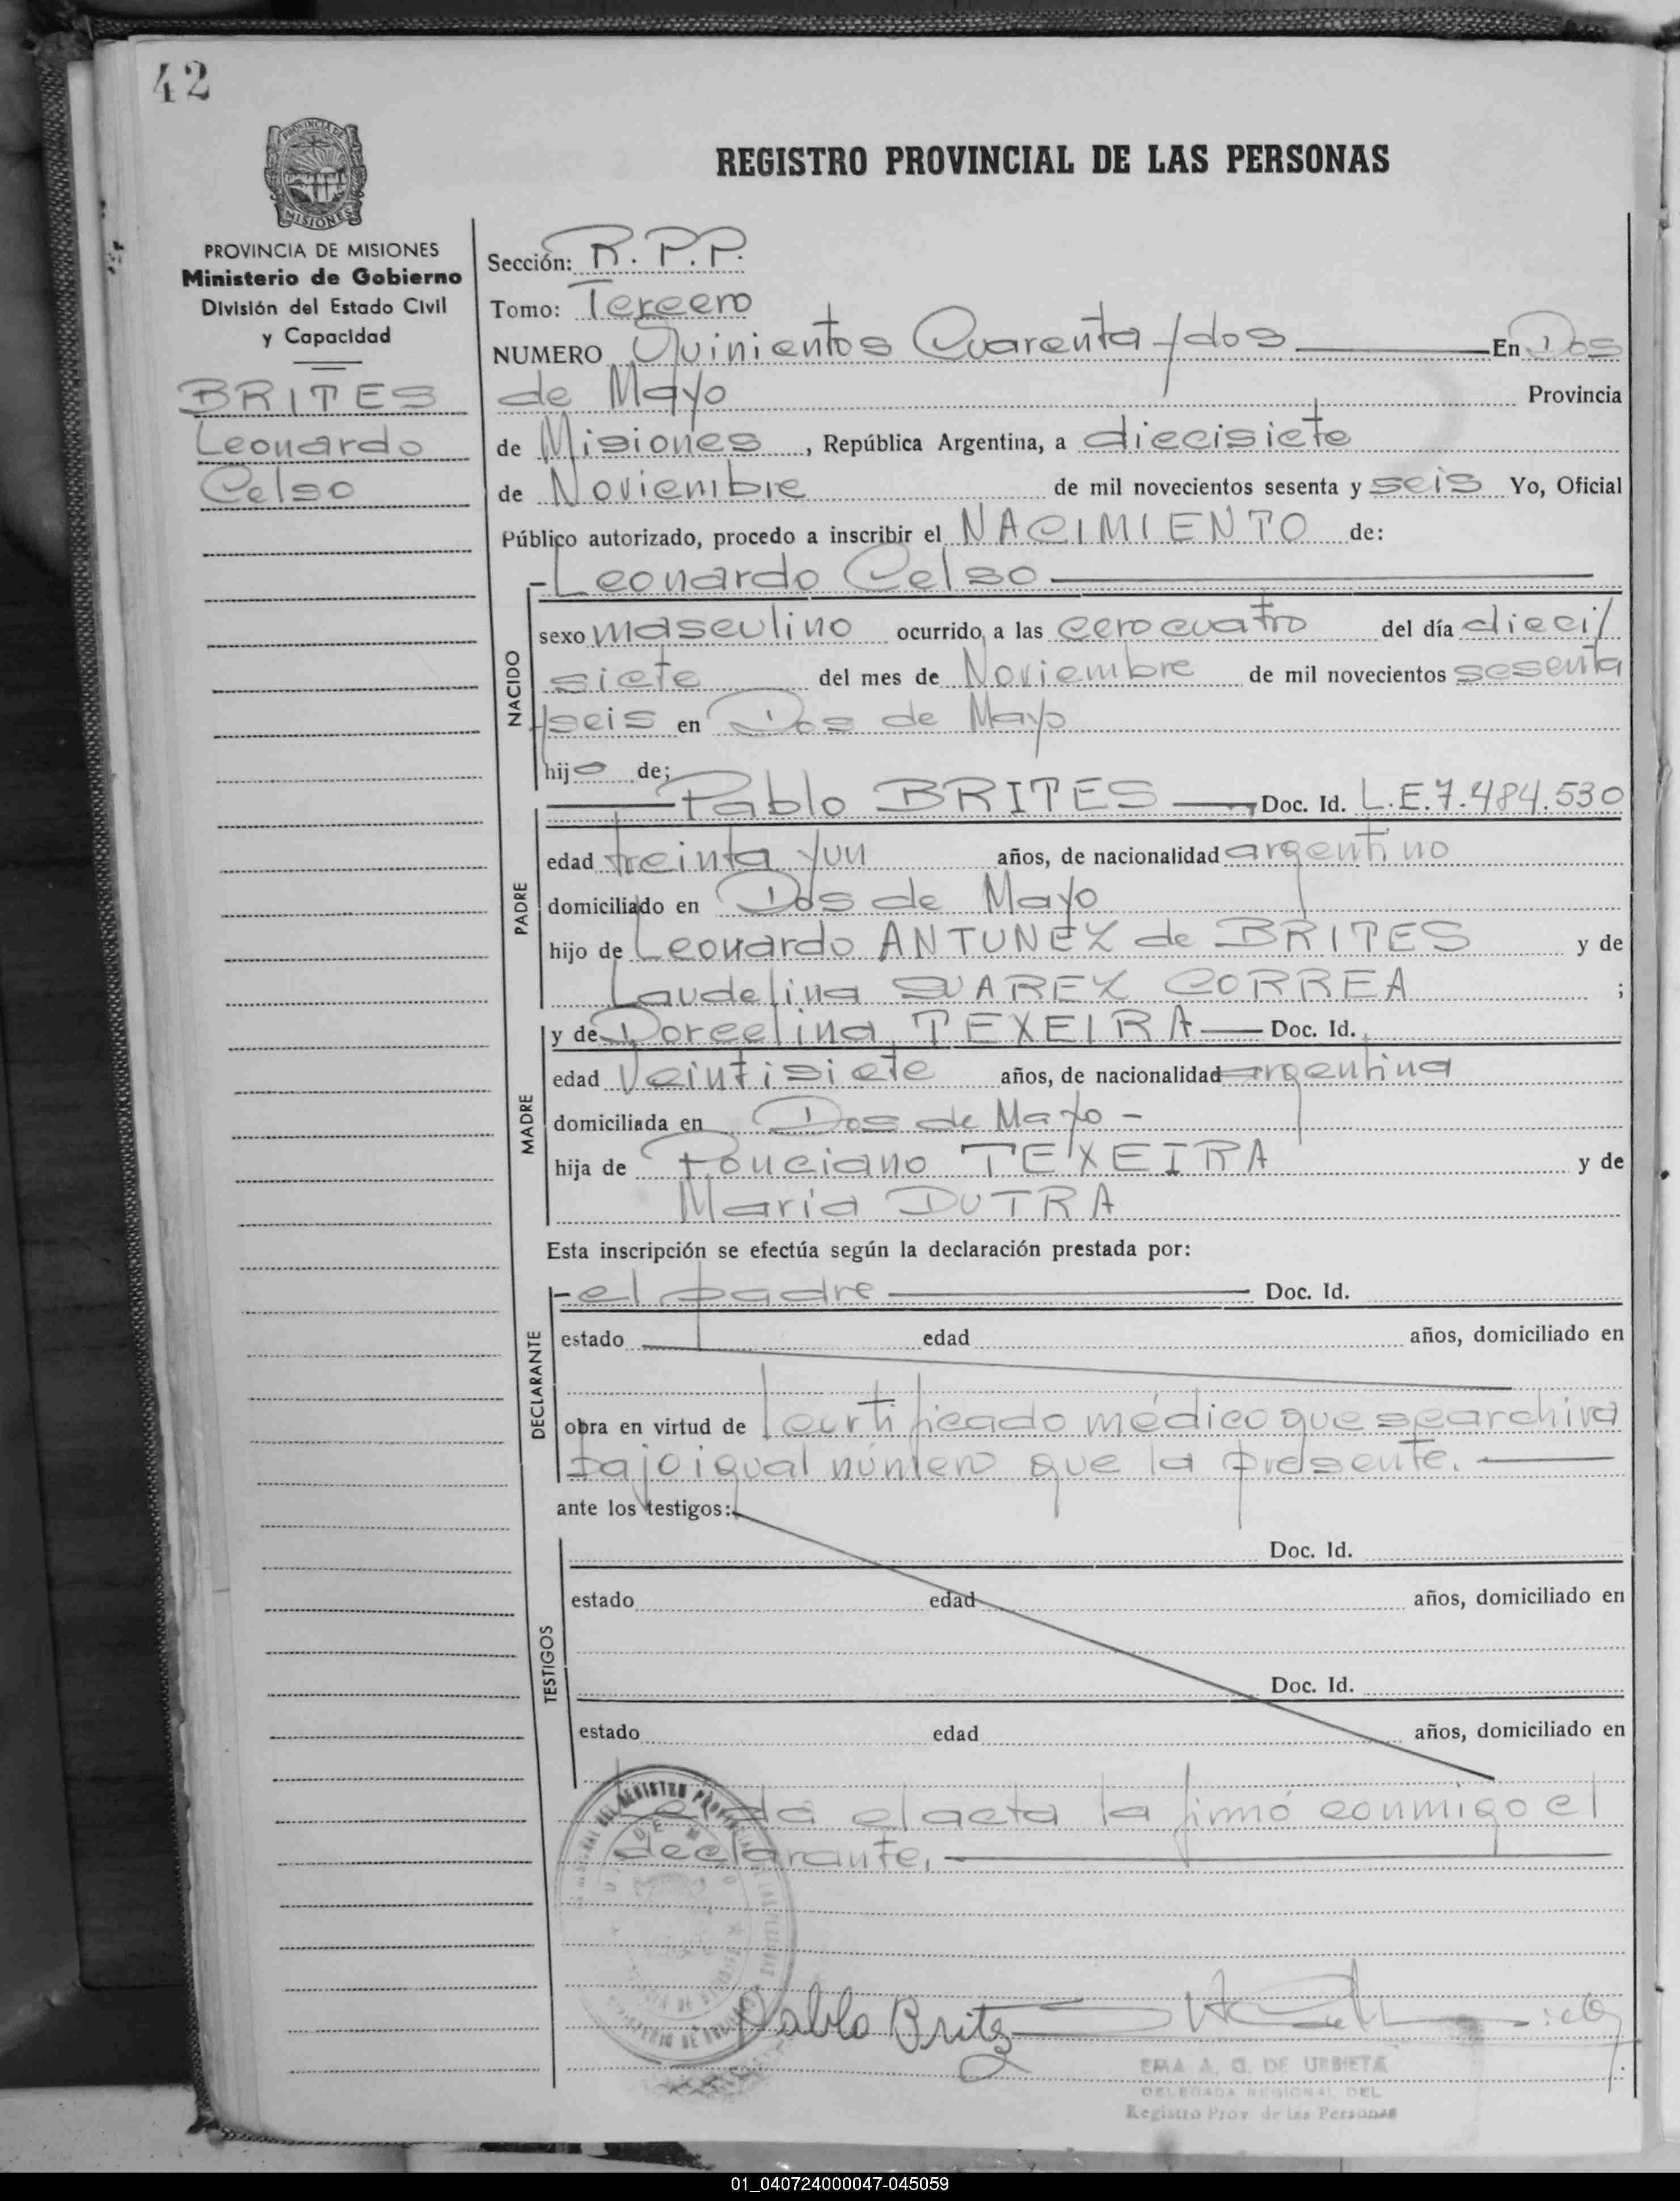 42
PROVINCIA DE
MISIONES
REGISTRO PROVINCIAL DE LAS PERSONAS
PROVINCIA DE MISIONES
Ministerio de Gobierno
División del Estado Civil
y Capacidad
BRITES
Leonardo
Celso
Sección: R. P.P.
Tomo: Tercero
NUMERO Quinientos Cuarenta y dos En Dos
de Mayo Provincia
de Misiones, República Argentina, a diecisiete
de Noviembre de mil novecientos sesenta y seis Yo, Oficial
Público autorizado, procedo a inscribir el NACIMIENTO de:
- Leonardo Celso
NACIDO
sexo masculino ocurrido a las cero cuatro del día dieci/
siete del mes de Noviembre de mil novecientos sesenta
y seis en Dos de Mayo
hijo de;
Pablo BRITES Doc. Id. L.E.7.484.530
PADRE
edad treinta y un años, de nacionalidad argentino
domiciliado en Dos de Mayo
hijo de Leonardo ANTUNEZ de BRITES y de
Laudelina SUAREZ CORREA ;
y de Dorcelina TEXEIRA Doc. Id.
MADRE
edad Veintisiete años, de nacionalidad argentina
domiciliada en Dos de Mayo -
hija de Ponciano TEXEIRA y de
Maria DUTRA
Esta inscripción se efectúa según la declaración prestada por:
DECLARANTE
- el padre Doc. Id.
estado edad años, domiciliado en
obra en virtud de certificado médico que se archiva
bajo igual número que la presente.
ante los testigos:
TESTIGOS
Doc. Id.
estado edad años, domiciliado en
Doc. Id.
estado edad años, domiciliado en
da el acta la firmó conmigo el
declarante.
Pablo Britez
EMA A. G. DE URBIETA
DELEGADA REGIONAL DEL
Registro Prov. de las Personas
01_040724000047-045059